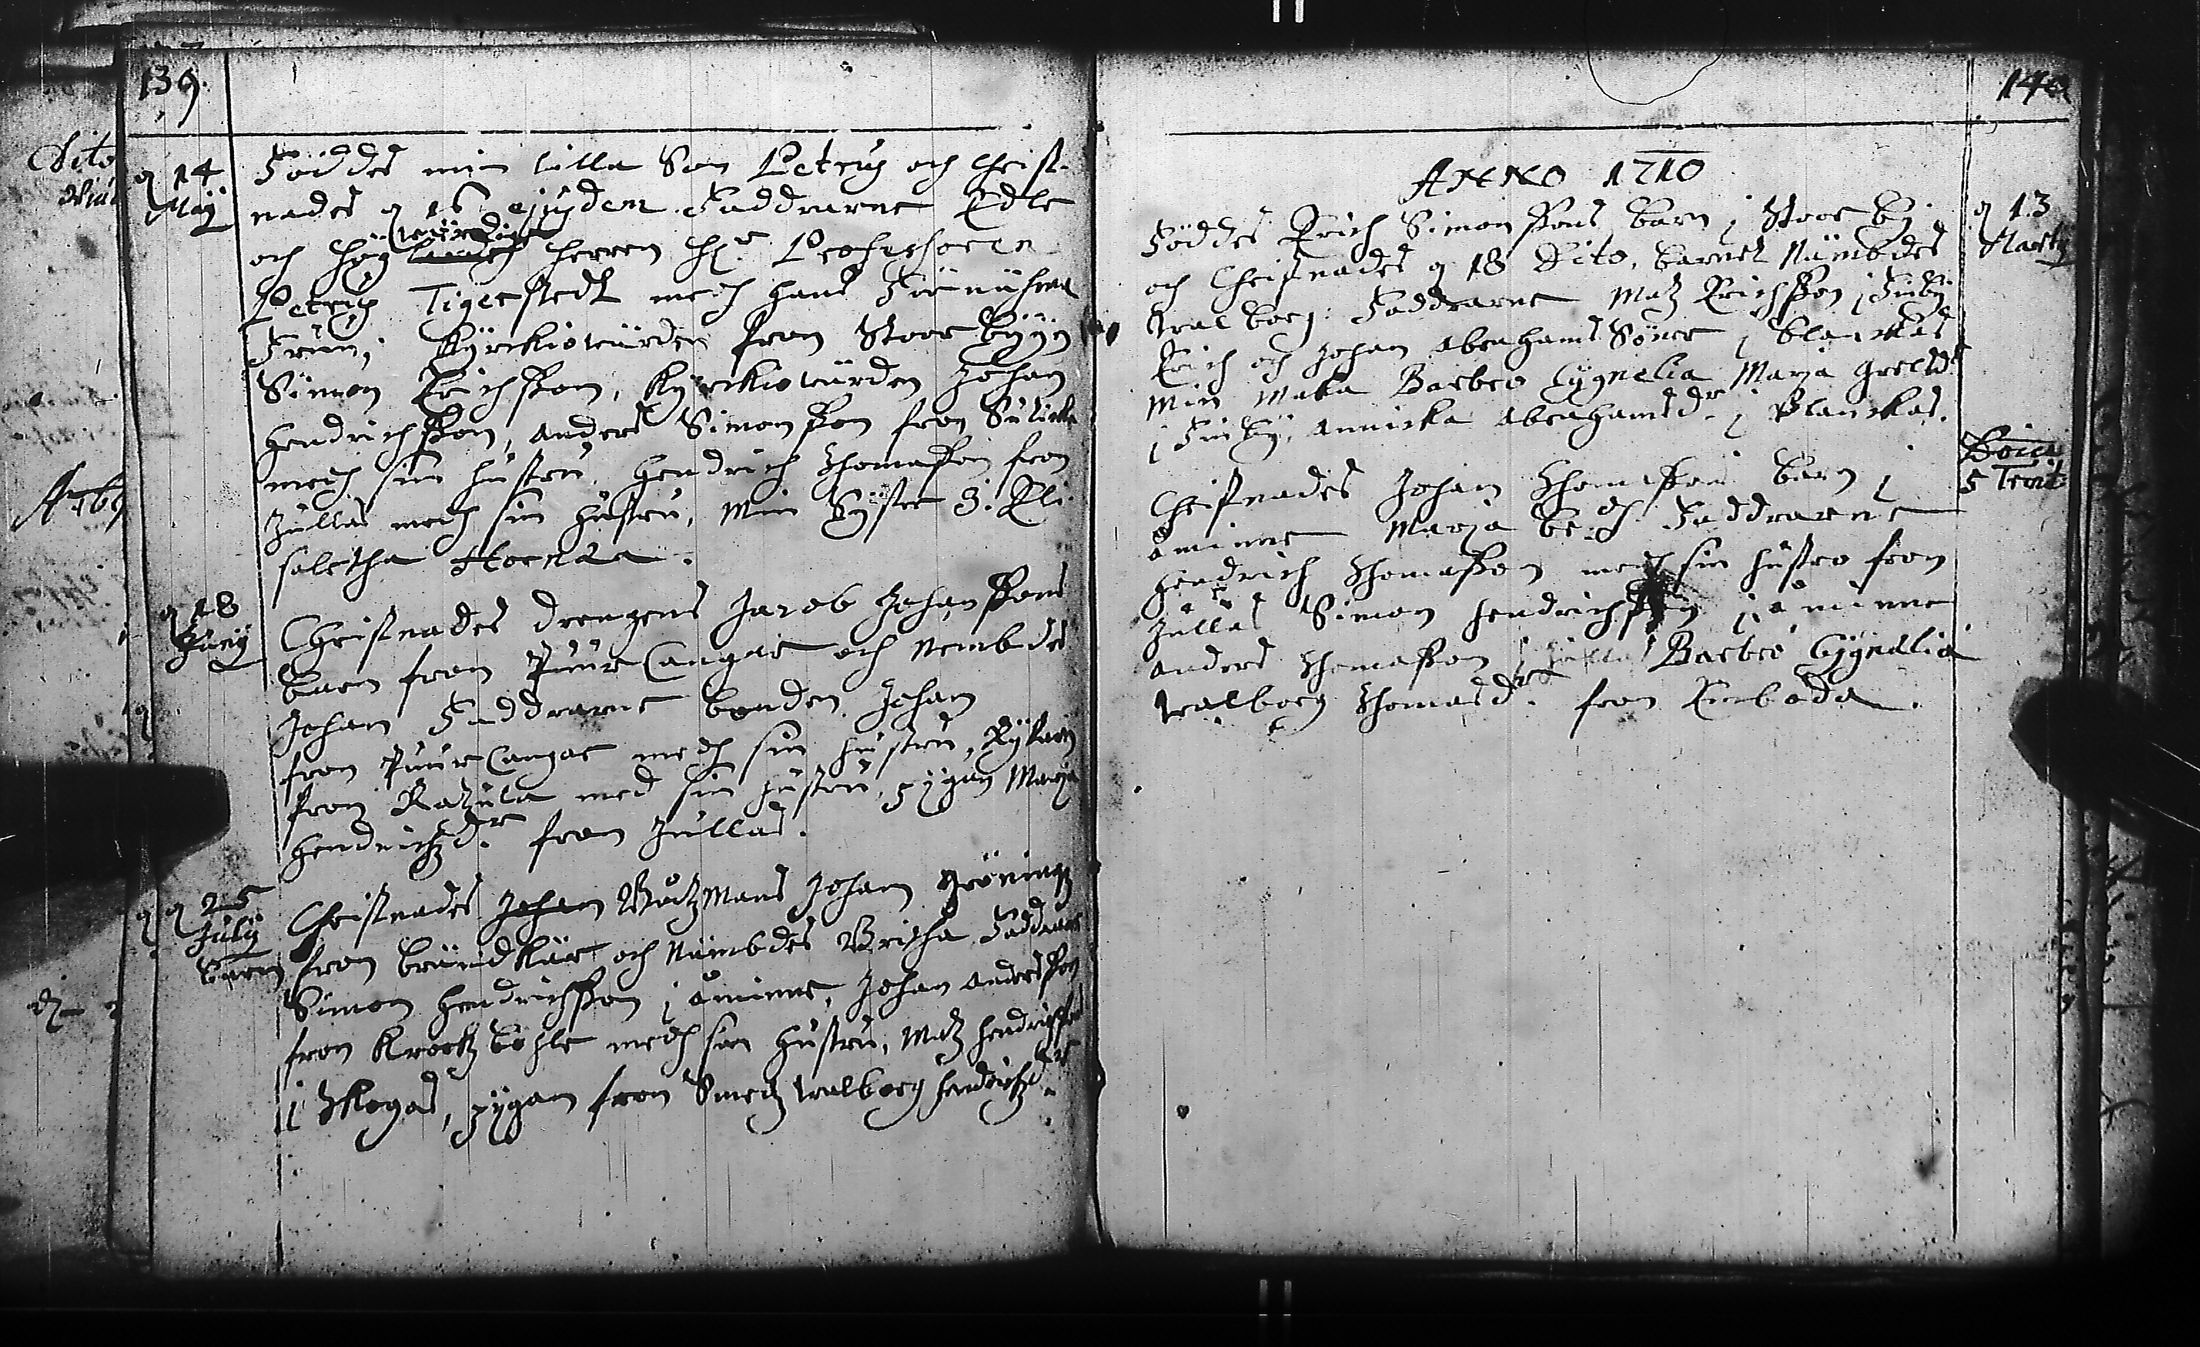 139.
d 14
Maij
Föddes min lilla Son Petrus och Christ-
nades d 16 ejusdem. Faddrarne Edle
och Hög würdige Herren Hr Professoren
Petrus Tigerstedt medh hans Förnähma
Frun, Kÿrckiowärden fron Stoor Byyn
Simon Erichsson, Kyrckiowärden Johan
Hendrichsson, Anders Simonsson fron
medh sin hustru. Hendrich Thomasson fron
Jullas medh sin hustru, Min Syster J. Eli-
sabetha Hornaa.
d 18
Junij
Christnades drengens Jacob Johanssons
barn fron Puurkangar och nembdes
Johan Faddrarne bonden Johan
fron Puurkangar medh sin hustru,
fron Razula med sin hustru, pygan Marja
Hendrichzdr. fron Jullas.
d 25
Julij
barn
Christnades Johan Båtzmans Johan Grönings
fron brändkärr och Nämbdes Britha Faddrarne
Simon Hendrichsson i åminne, Johan Andersson
fron Krookz böhle medh sin hustru, Matz Hendrichsson
i Skogas, pygan fron Smedz Walborg Hendrichzdr.
140
ANNO 1710
d 13
Martij
Föddes Erich Simonssons barn i Stoor by
och Christnades d 18 Dito, barnet Nämbdes
Walborg: Faddrarne Matz Erichsson i Finby
Erich och Johan Abrahams Söner i blanckas
Min Maka Barbro Cygnelia Marja Grelsdr
i Finby, Annicka Abrahamsdr i Blanckas.
5 Trinit:
Christnades Johan Thomassons barn i
åminne Marja be:dh Faddrarne
Hendrich Thomasson medh sin hustro fron
Jullas Simon Hendrichsson i åminne
Anders Thomasson i Jullas Barbro Cygnelia
Walborg Thomasdr. fron Kerboda.